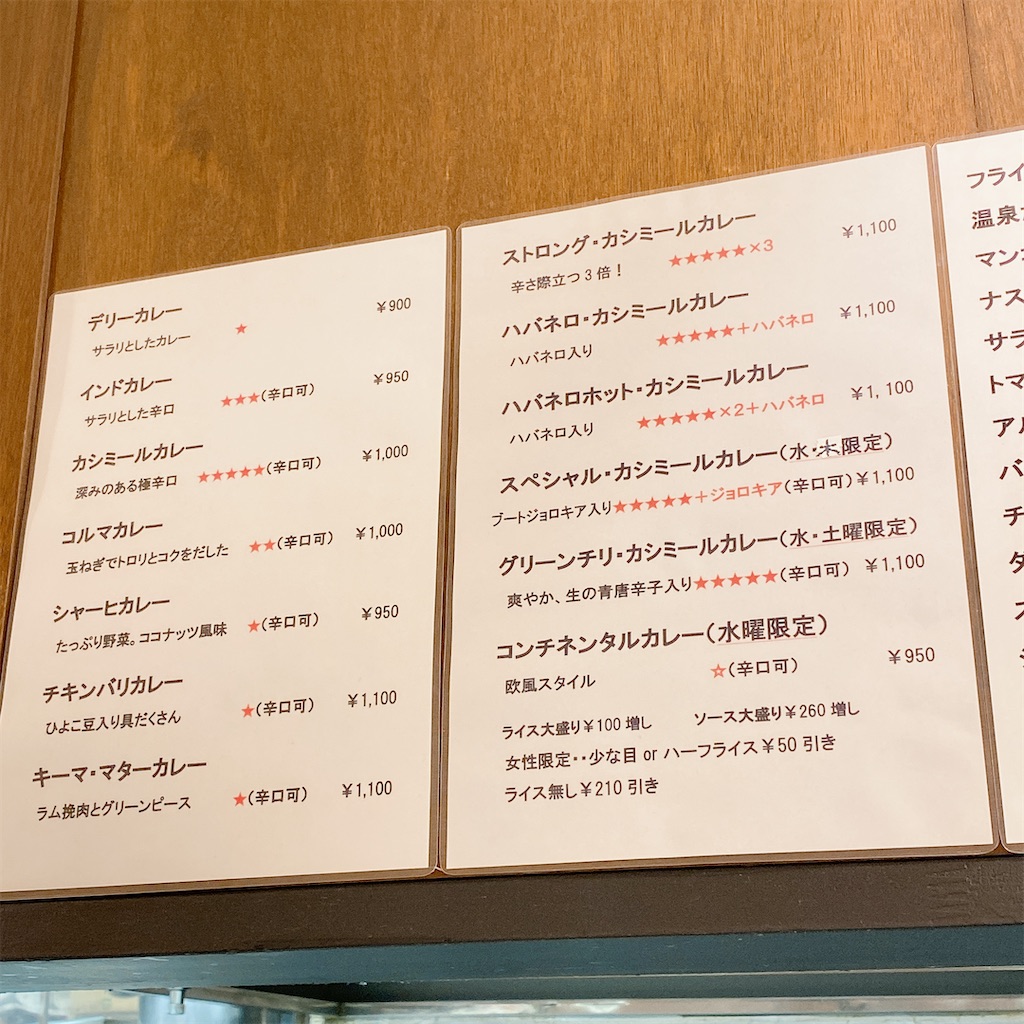 デリーカレー ¥900
サラリとしたカレー ★
インドカレー ¥950
サラリとした辛口 ★★★(辛口可)
カシミールカレー ¥1,000
深みのある極辛口 ★★★★★(辛口可)
コルマカレー ¥1,000
玉ねぎでトロリとコクをだした ★★(辛口可)
シャーヒカレー ¥950
たっぷり野菜。ココナッツ風味 ★(辛口可)
チキンバリカレー ¥1,100
ひよこ豆入り具だくさん ★(辛口可)
キーマ・マターカレー ¥1,100
ラム挽肉とグリーンピース ★(辛口可)
ストロング・カシミールカレー ¥1,100
辛さ際立つ3倍! ★★★★★×3
ハバネロ・カシミールカレー ¥1,100
ハバネロ入り ★★★★★+ハバネロ
ハバネロホット・カシミールカレー ¥1,100
ハバネロ入り ★★★★★×2+ハバネロ
スペシャル・カシミールカレー(水・木限定)
ブートジョロキア入り★★★★★+ジョロキア(辛口可)¥1,100
グリーンチリ・カシミールカレー(水・土曜限定)
爽やか、生の青唐辛子入り★★★★★(辛口可) ¥1,100
コンチネンタルカレー(水曜限定)
欧風スタイル ☆(辛口可) ¥950
ライス大盛り¥100 増し ソース大盛り¥260 増し
女性限定・・少な目 or ハーフライス¥50 引き
ライス無し¥210 引き
フライ
温泉
マン
ナス
サラ
トマ
アル
バ
チ